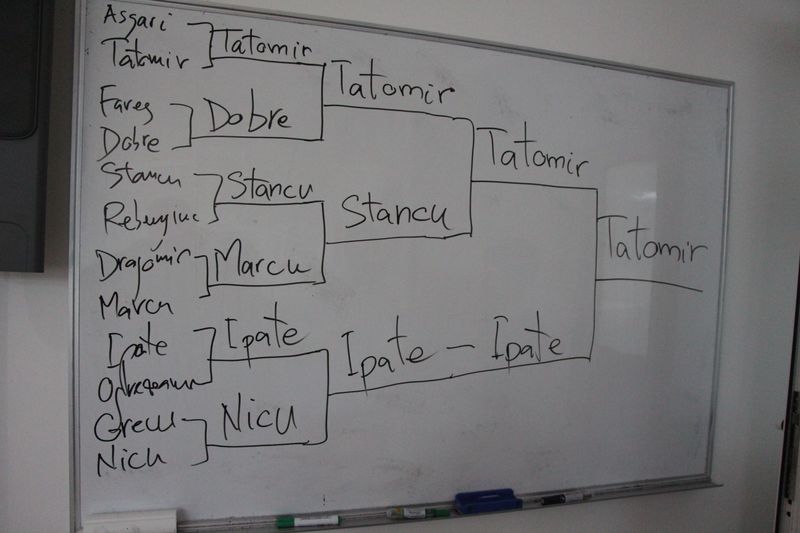 Asgari
Tatomir
Tatomir
Tatomir
Fares
Dobre
Dobre
Tatomir
Stancu
Stancu
Stancu
Dragomir
Marcu
Marcu
Tatomir
Ipate
Ipate
Ipate - Ipate
Nicu
Nicu